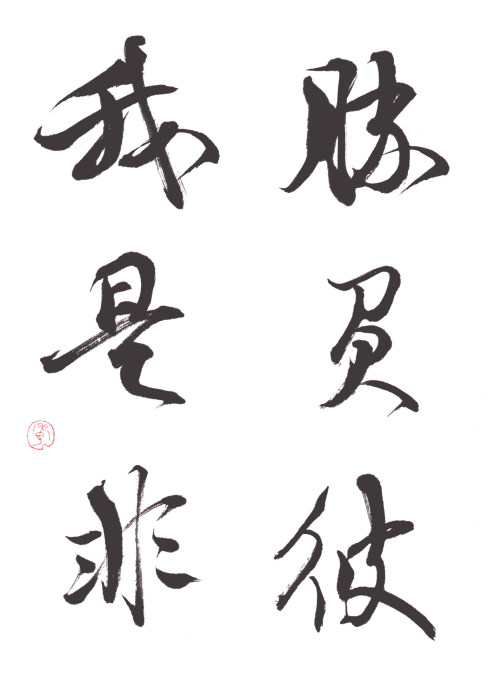 勝負彼
我是非